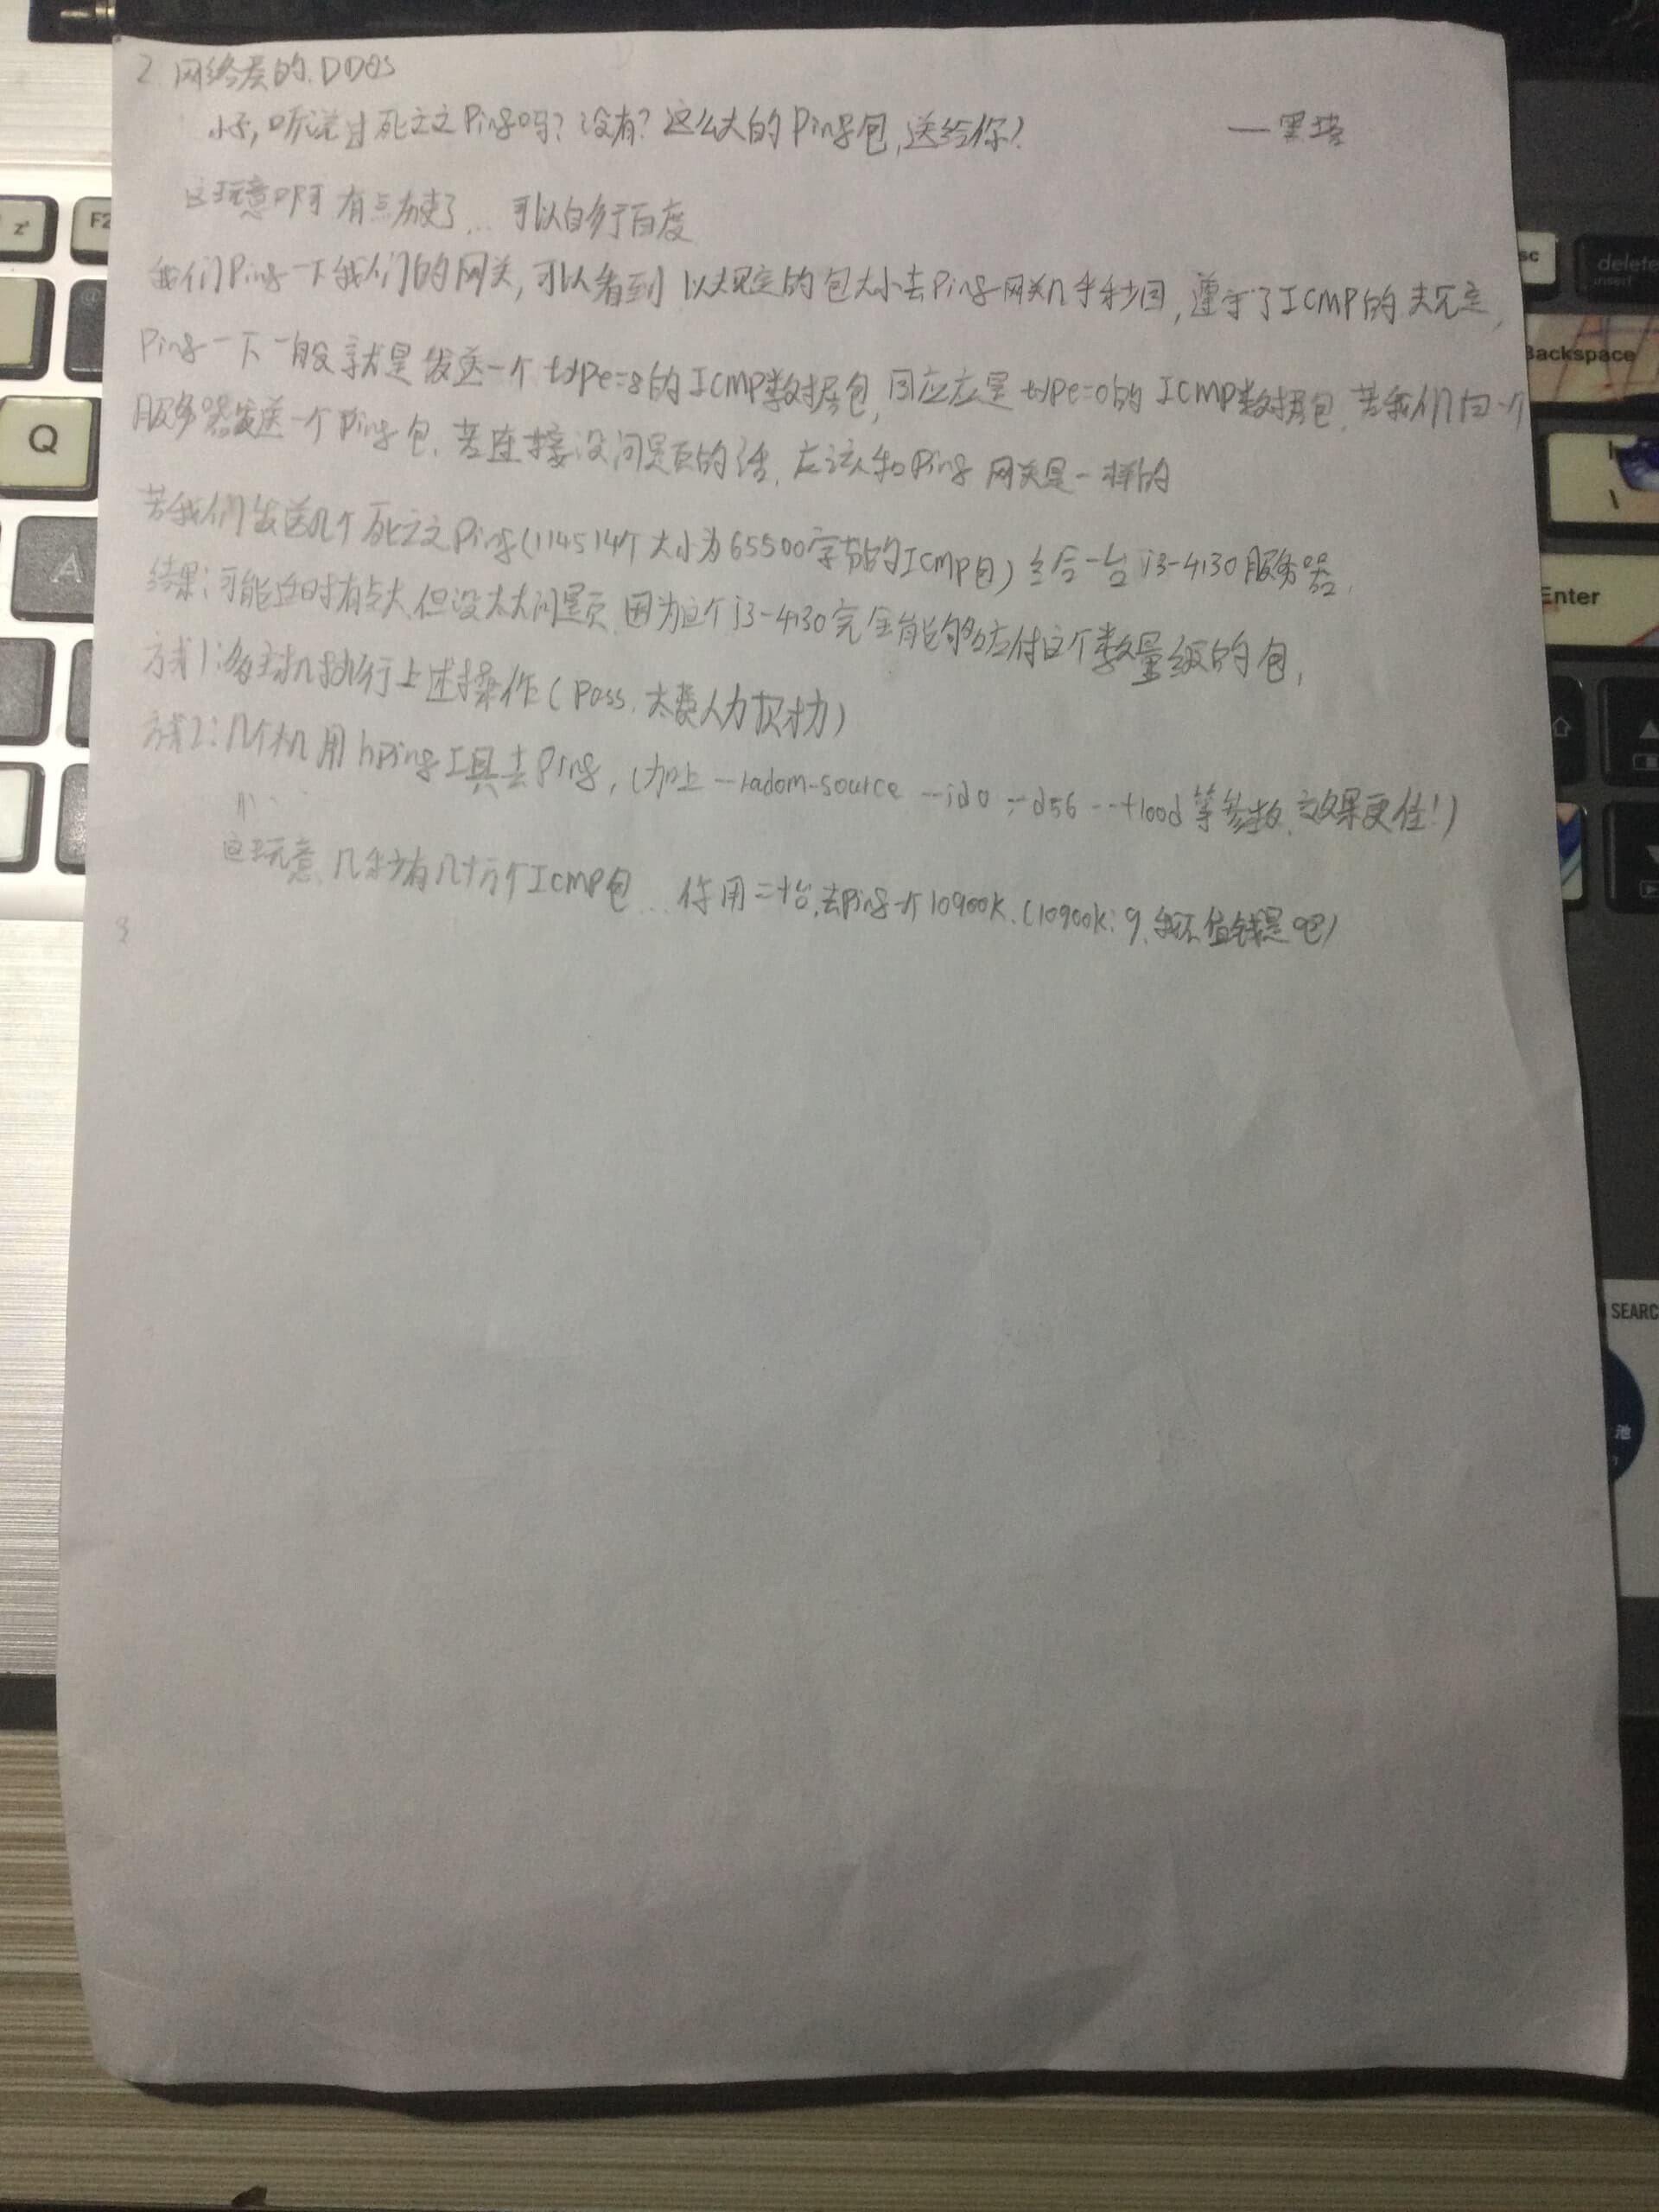 2. 网络层的.DDOS
小子,听说过死亡之Ping吗?没有?这么大的Ping包,送给你! —黑塔
这玩意啊 有点历史了... 可以自行百度
我们Ping一下我们的网关,可以看到 以规定的包大小去Ping网关几乎秒回,遵守了ICMP的规定,
Ping一下一般就是发送一个type=8的ICMP数据包,回应应是type=0的ICMP数据包.若我们向一个
服务器发送一个Ping包.若连接没问题的话,应该和Ping网关是一样的
若我们发送几个死亡之Ping(114514个大小为65500字节的ICMP包)给一台i3-4130服务器.
结果:可能延时有点大,但没太大问题,因为这个i3-4130完全能够应付这个数量级的包,
方式1:多主机执行上述操作(Pass.太费人力财力)
方式2:几个机用hping工具去Ping,(加上--radom-source --id0 -d56 --flood等参数,效果更佳!)
这玩意,几秒有几十万个ICMP包... 你用二十台,去Ping一个10900k.(10900k:9,我不值钱是吧)
3
Q
A
F2
Backspace
Enter
delete
insert
SEARC
池